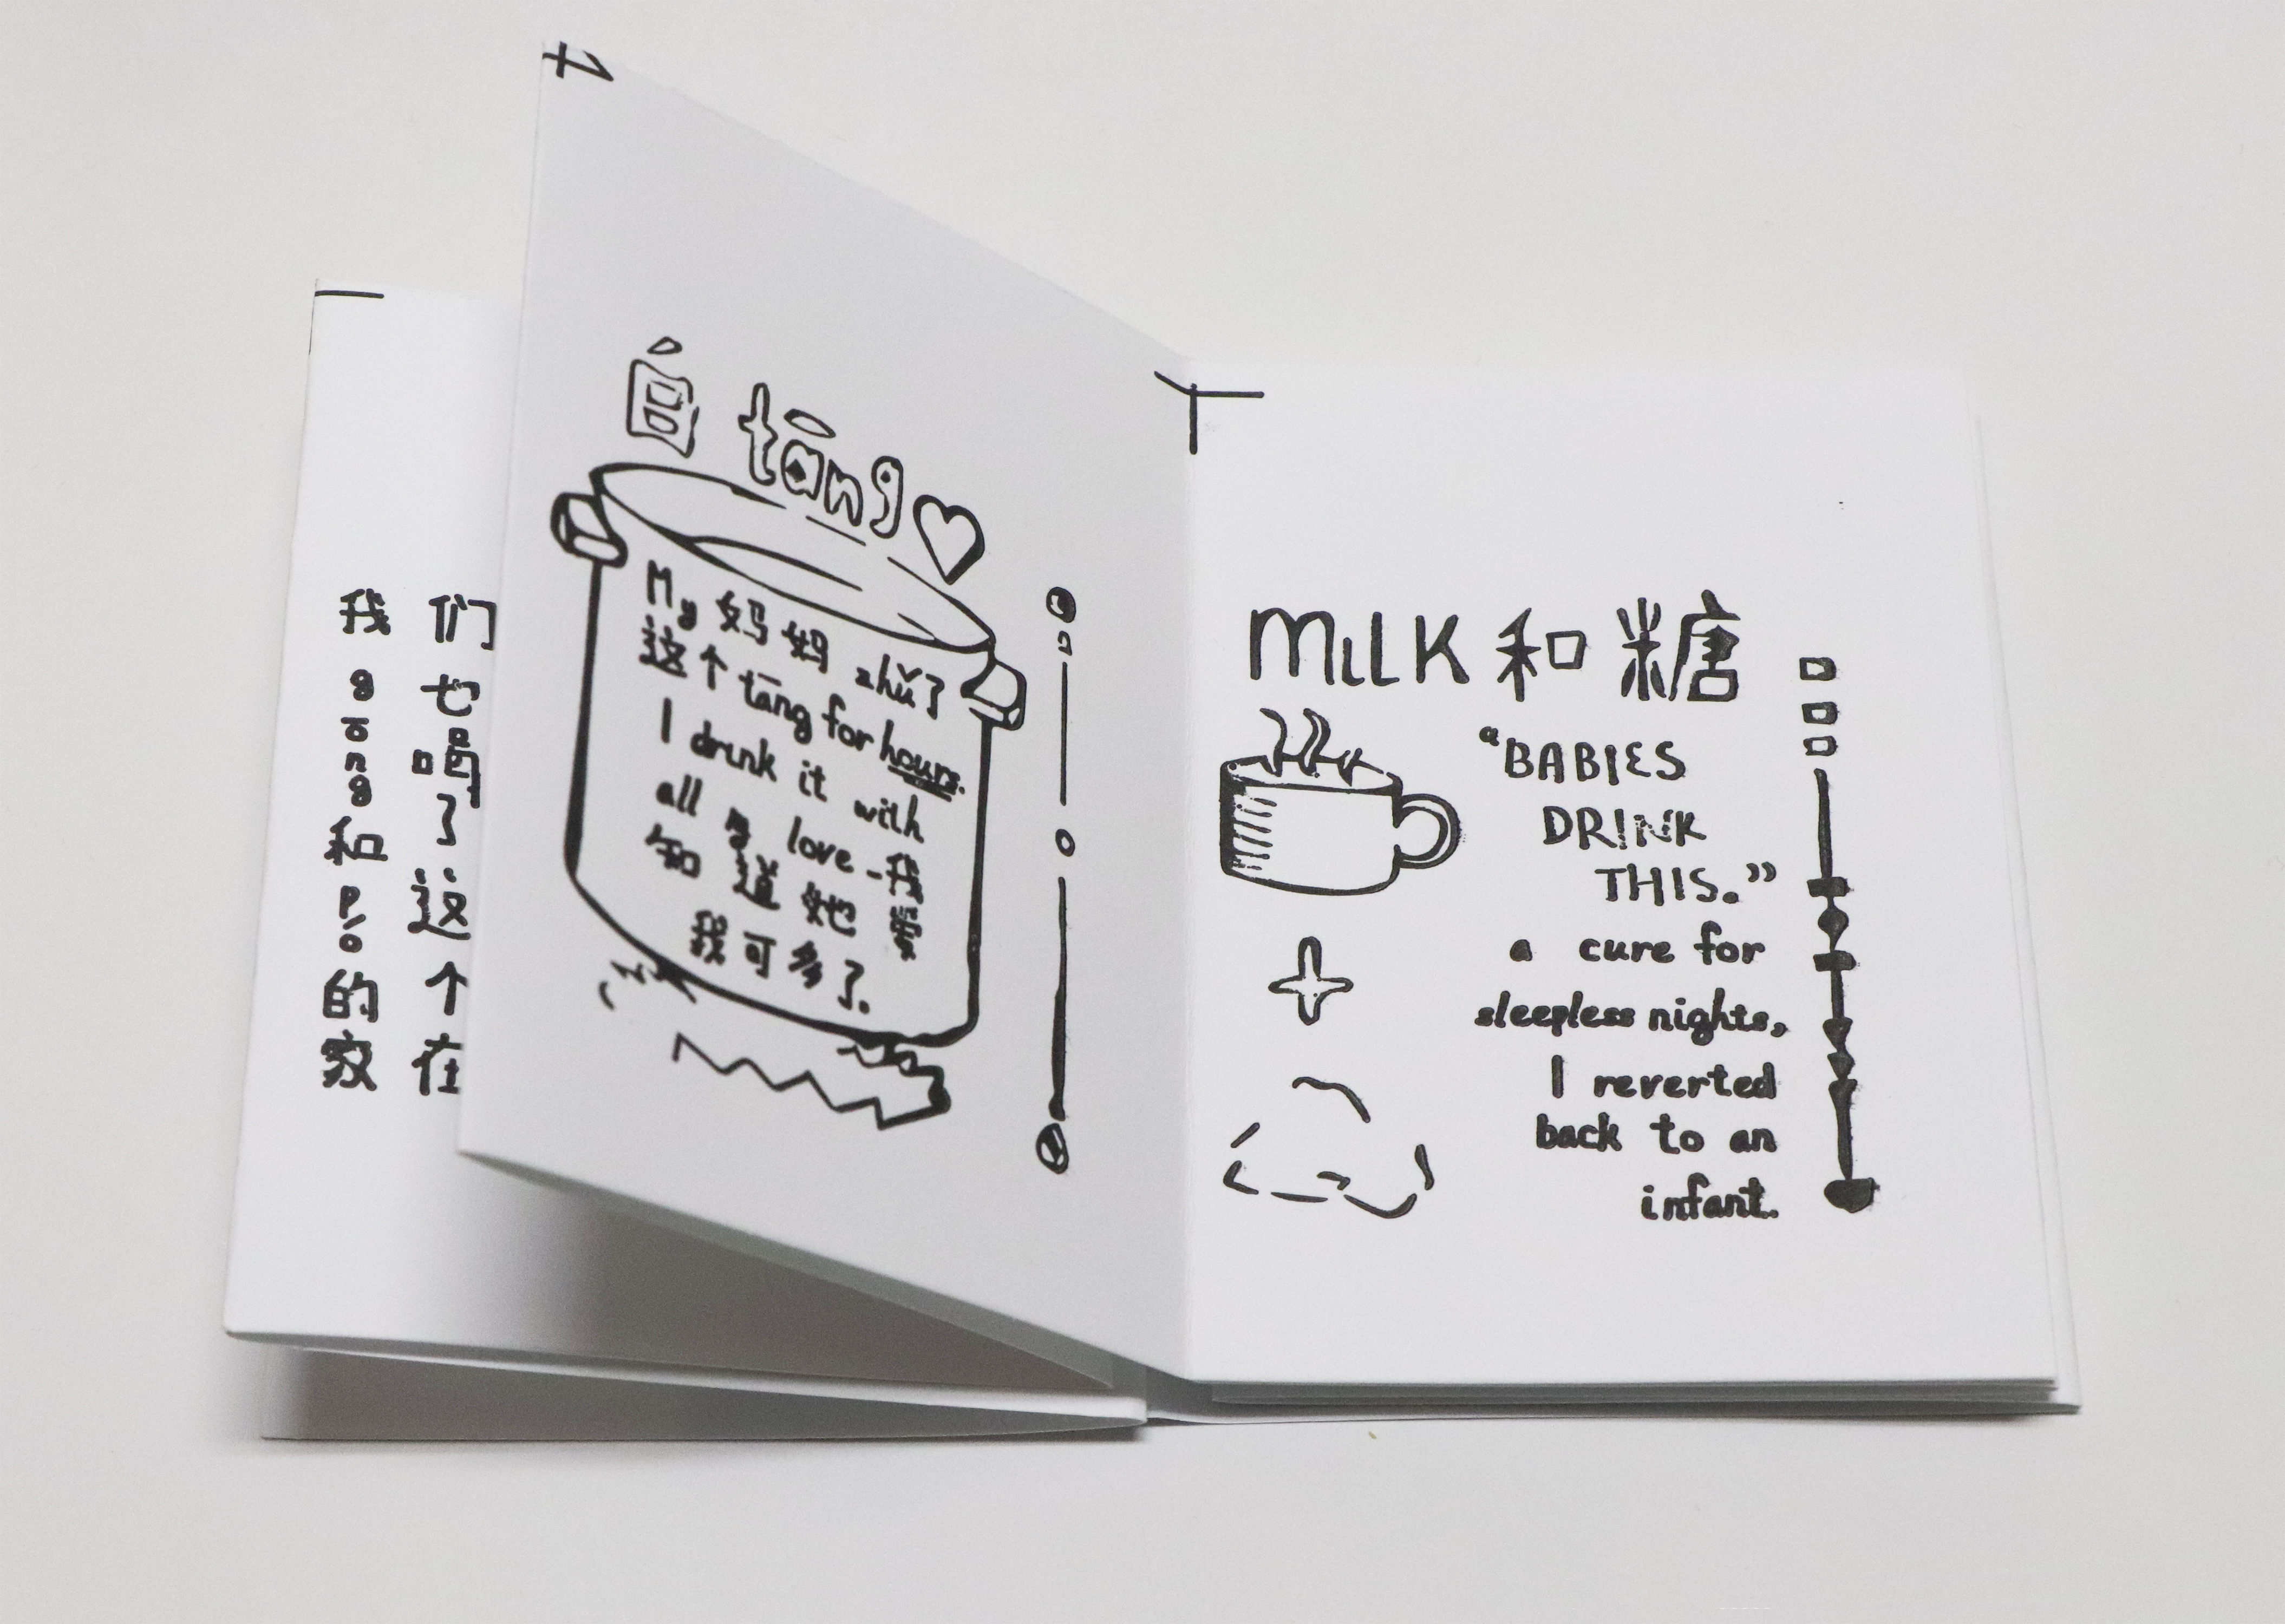 我们
gōng也
和喝了
pó这
的个
家在
白 tāng
My 妈妈 zhǔ了
这个 tāng for hours.
I drink it with
all my love - 我
知道她爱
我可多了.
MiLK 和糖
“BABIES
DRINK
THIS.”
a cure for
sleepless nights,
I reverted
back to an
infant.